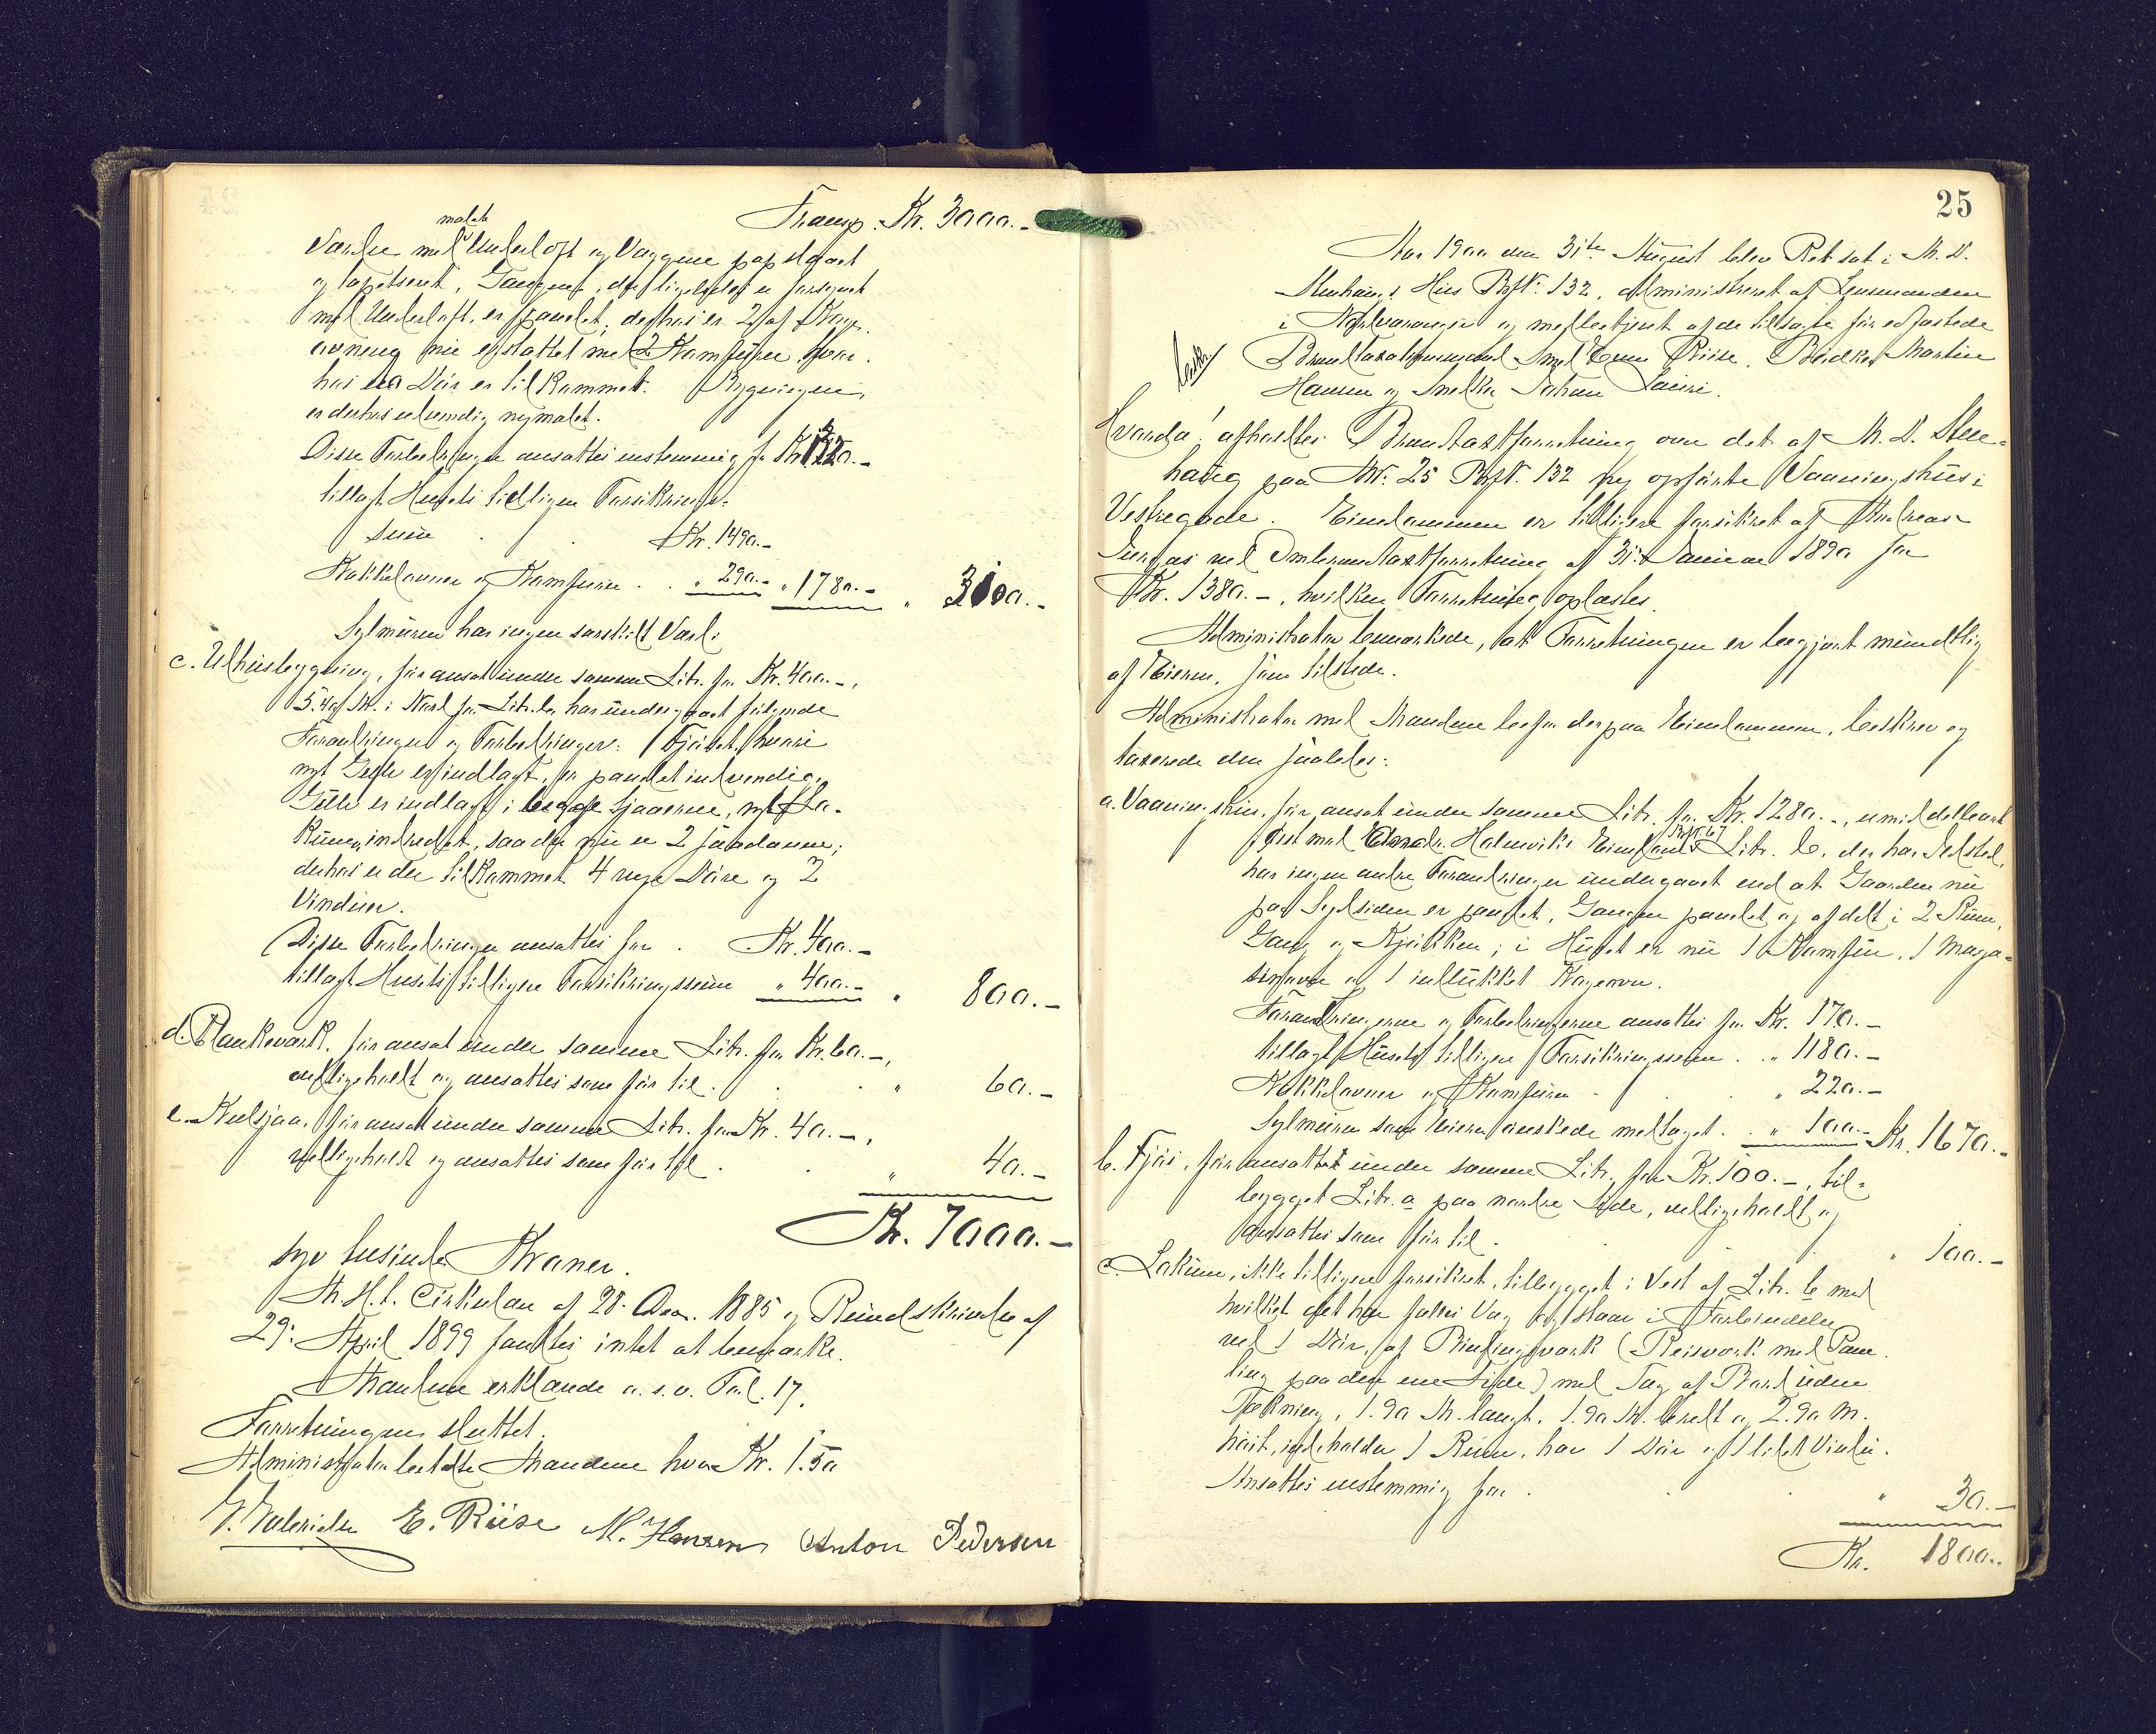 Transp. Kr. 3000.-
malet
Værelse med Underloft og Væggene papslaaet
og tapetseret, Gangen, der ligeledes er forsynet
med Underloft, er panelet; desforuden er 2 af
ovnene nu erstattet med 2 Kamfuner.
hos er Dør er tilkommet. Bygningen
er derhos udvendig nymalet.
Disse Forbedringer ansattes enstemmig for Kr. 1320.-
tillagt Husets tidligere Forsikrings-
sum Kr. 1490.-
Kakkelovner og Kamfuner . . " 290.- " 1780.- " 3100.-
Sylmuren har ingen særskilt Værdi
c. Udhusbygning, før ansat under samme Litr. for Kr. 400.-,
5.40 M. i Nord for Litr. b, har undergaaet følgende
Forandringer og Forbedringer: Fjøset, hvori
nyt Gulv er indlagt, er panelet indvendig,
Gulv er indlagt i begge Sjaaerne, nyt Lo-
kum indredet, saa der nu er 2 saadanne;
derhos er der tilkommet 4 nye Døre og 2
Vinduer.
Disse Forbedringer ansattes for . Kr. 400.-
tillagt Husets tidligere Forsikringssum " 400.- " 800.-
d. Plankeværk, før ansat under samme Litr. for Kr. 60.-,
vedligeholdt og ansattes som før til . . . " 60.-
e. Kulsjaa, før ansat under samme Litr. for Kr. 40.-,
vedligeholdt og ansattes som før til . . " 40.-
Kr. 7000.-
syv tusinde Kroner.
Th. H. t. Cirkulær af 28. Dec. 1885 og Rundskrivelse af
29. April 1899 fandtes intet at bemærke.
Mændene erklærede o. s. v. Fol. 17.
Forretningen sluttet.
Administrator betalte Mændene hver Kr. 1.50
E. Riise M. Hansen Anton Pedersen
25
Aar 1900 den 31te August blev Ret sat i M. D.
Stenhaugs Hus Br№ 132, administreret af Lensmanden
i Nordvaranger og medbetjent af de tilsagte før edfæstede
Besk.
Brandtaxationsmænd Smed Even Riise, Bødker Martin
Hansen og Snedker Johan
Hvorda: afholdtes Branntaxtforretning over det af M. D. Sten-
haug paa M№ 25 Br№ 132 ny opførte Vaaningshus i
Vestregade. Eiendommen er tidligere forsikret af Andreas
ved Ombrandtaxtforretning af 31. Januar 1890 for
Kr. 1380.-, hvilken Forretning oplæstes.
Administrator bemærkede, at Forretningen er begjært mundtlig
af Eieren, som tilstede.
Administrator med Mændene besaa derpaa Eiendommen, beskrev og
taxerede den saaledes:
a. Vaaningshus, før ansat under samme Litr. for Kr. 1280.-, umiddelbart
Br№ 67
Øst med Holmviks Eiendoms Litr. b, der har Ildsted,
har ingen andre Forandringer undergaaet end at Gaarden nu
paa Sydsiden er panelet, Gangen panelet og afdelt i 2 Rum,
Gang og Kjøkken; i Huset er nu 1 Kamfun, 1 Maga-
sinovn og 1 indlukket Kogeovn.
Forandringerne og Forbedringerne ansattes for Kr. 170.-
tillagt Husets tidligere Forsikringssum . . " 1180.-
Kakkelovner og Kamfuner . . " 220.-
Sylmuren som Eieren ønskede medtaget . . " 100.- Kr. 1670.-
b. Fjøs, før ansattet under samme Litr. for Kr. 100.-, til-
bygget Litr. a paa nordre Side, vedligeholdt og
ansattes som før til . . . " 100.-
c. Lokum, ikke tidligere forsikret, tilbygget i Vest af Litr. b med
hvilket det har fælles Væg og staar i Forbindelse
ved 1 Dør, af Bindingsværk (Reisværk med Pane-
ling paa den ene Side) med Tag af Bord uden
Tækning, 1.90 M. langt, 1.90 M. bredt og 2.90 M.
høit, indeholder 1 Rum, har 1 Dør og 1 lidet Vindu.
Ansattes enstemmig for . . . " 30.-
Kr. 1800.-